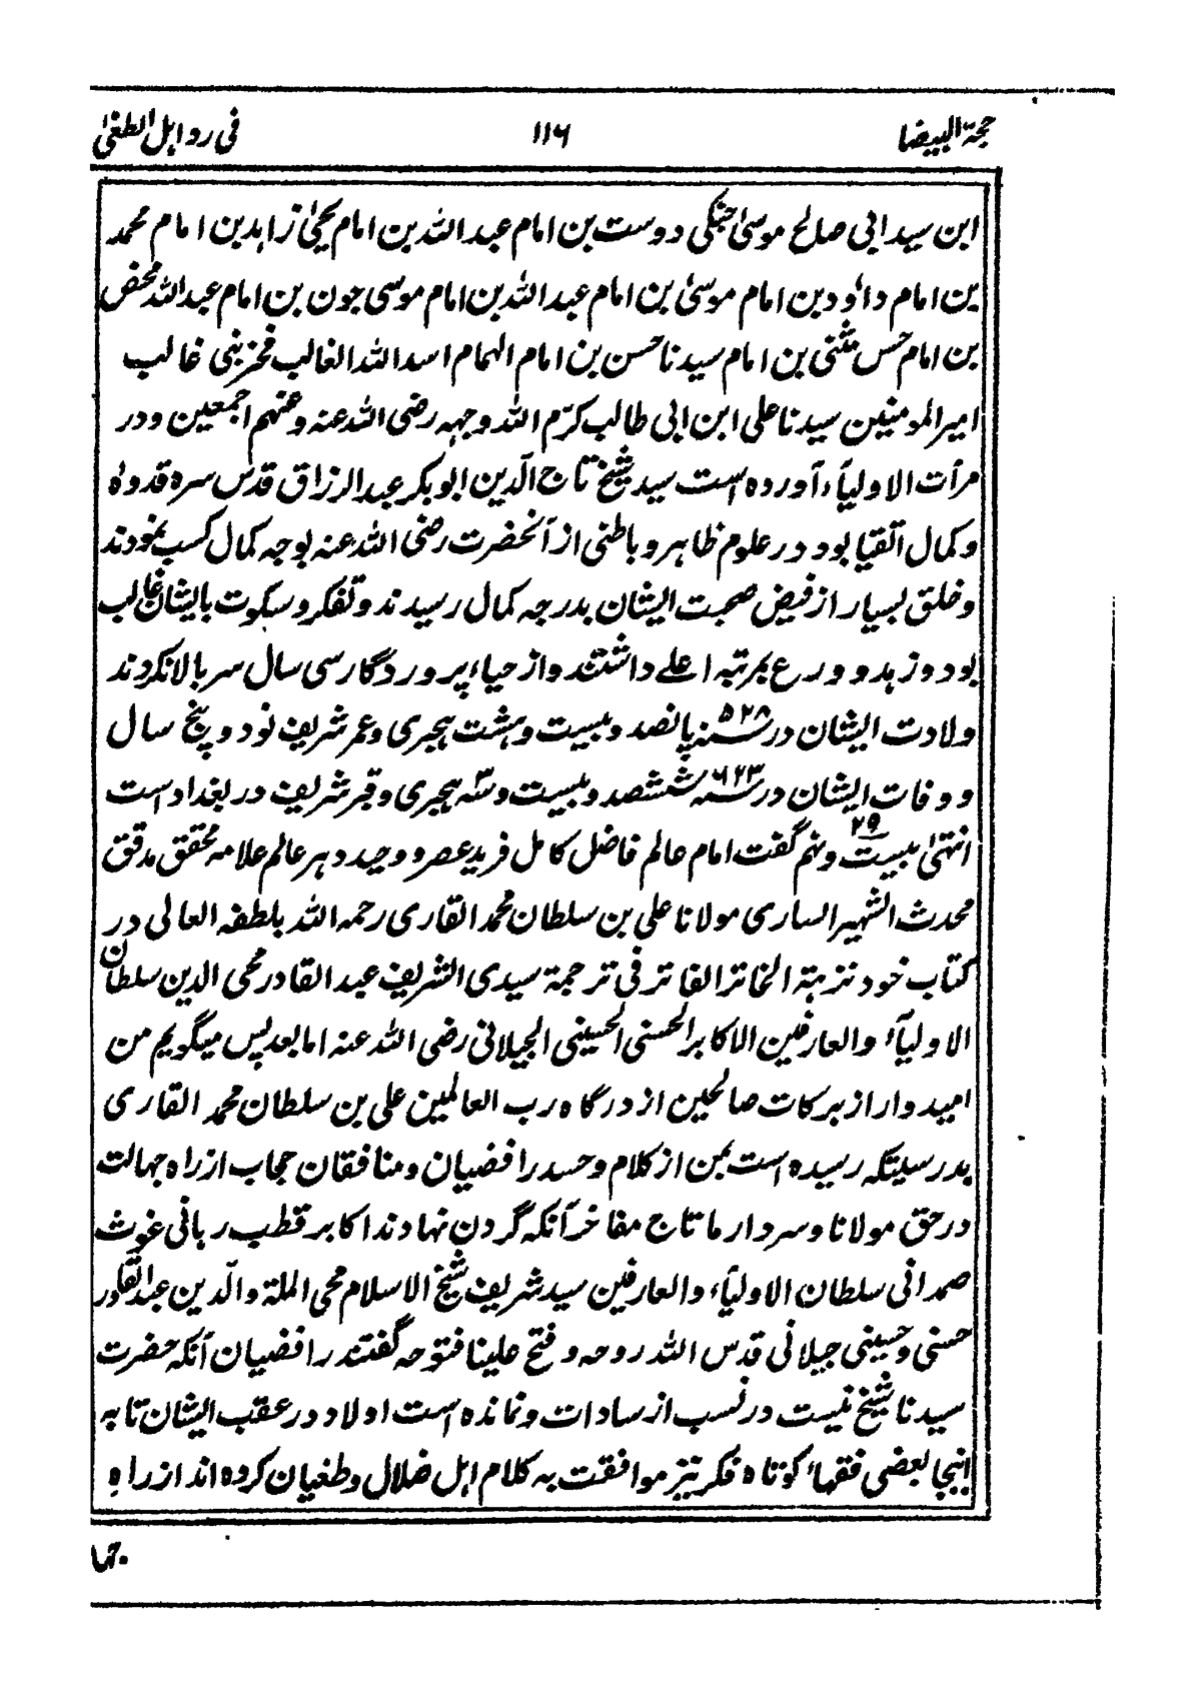 حجۃ البیضا ۱۱۶ فی رد اہل الطغیٰ
ابن سید ابی صالح موسیٰ جنگی دوست بن امام عبد اللہ بن امام یحییٰ زاہد بن امام محمد
بن امام داؤد بن امام موسیٰ بن امام عبد اللہ بن امام موسی جون بن امام عبد اللہ محض
بن امام حسن مثنی بن امام سیدنا حسن بن امام الہمام اسد اللہ الغالب فخر بنی غالب
امیر المومنین سیدنا علی ابن ابی طالب کرّم اللہ وجہہ رضی اللہ عنہ و عنہم اجمعین و در
مرأت الاولیآء آوردہ است سید شیخ تاج الدّین ابو بکر عبد الرزاق قدس سرہ قدوہ
و کمال اتقیا بود در علوم ظاہر و باطنی از آنحضرت رضی اللہ عنہ بوجہ کمال کسب نمودند
و خلق بسیار از فیض صحبت ایشان بدرجہ کمال رسیدند و تفکر و سکوت بایشان غالب
بود و زہد و ورع بمرتبہ اعلے داشتند و از حیاء پروردگار سی سال سر بالا نکردند
ولادت ایشان در ۵۲۸ سنہ پانصد و بیست و ہشت ہجری و عمر شریف نود و پنج سال
و وفات ایشان در ۶۲۳ سنہ ششصد و بیست و سہ ہجری و قبر شریف در بغداد است
انتہیٰ ۲۹ بیست و نہم گفت امام عالم فاضل کامل فرید عصر و وحید دہر عالم علامہ محقق مدقق
محدث الشہیر الساری مولانا علی بن سلطان محمد القاری رحمہ اللہ بلطفہ العالی در
کتاب خود نزہتہ الخاتر الفاتر فی ترجمۃ سیدی الشریف عبد القادر محی الدین سلطان
الاولیآء والعارفین الاکابر الحسنی الحسینی الجیلانی رضی اللہ عنہ اما بعد پس میگویم من
امیدوار از برکات صالحین از درگاہ رب العالمین علی بن سلطان محمد القاری
بدرستیکہ رسیدہ است بمن از کلام و حسد رافضیان و منافقان حجاب از راہ جہالت
در حق مولانا و سردار ما تاج مفاخر آنکہ گردن نہادند اکابر قطب ربانی غوث
صمدانی سلطان الاولیآء والعارفین سید شریف شیخ الاسلام محی الملۃ والدّین عبد القادر
حسنی و حسینی جیلانی قدس اللہ روحہ و فتح علینا فتوحہ گفتند رافضیان آنکہ حضرت
سیدنا شیخ نیست در نسب از سادات و نماندہ است اولاد در عقب ایشان تا بہ
اینجا بعضی فقہاء کوتاہ فکر نیز موافقت بہ کلام اہل ضلال و طغیان کردہ اند از راہ